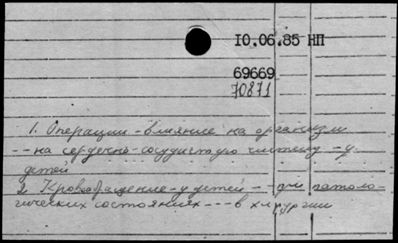 10.06.85 НП
69669
70871
1. Операции - влияние на организм
-- на сердечно-сосудистую систему - у
детей
2. Кровообращение - у детей -- при патоло-
гических состояниях --- в хирургии